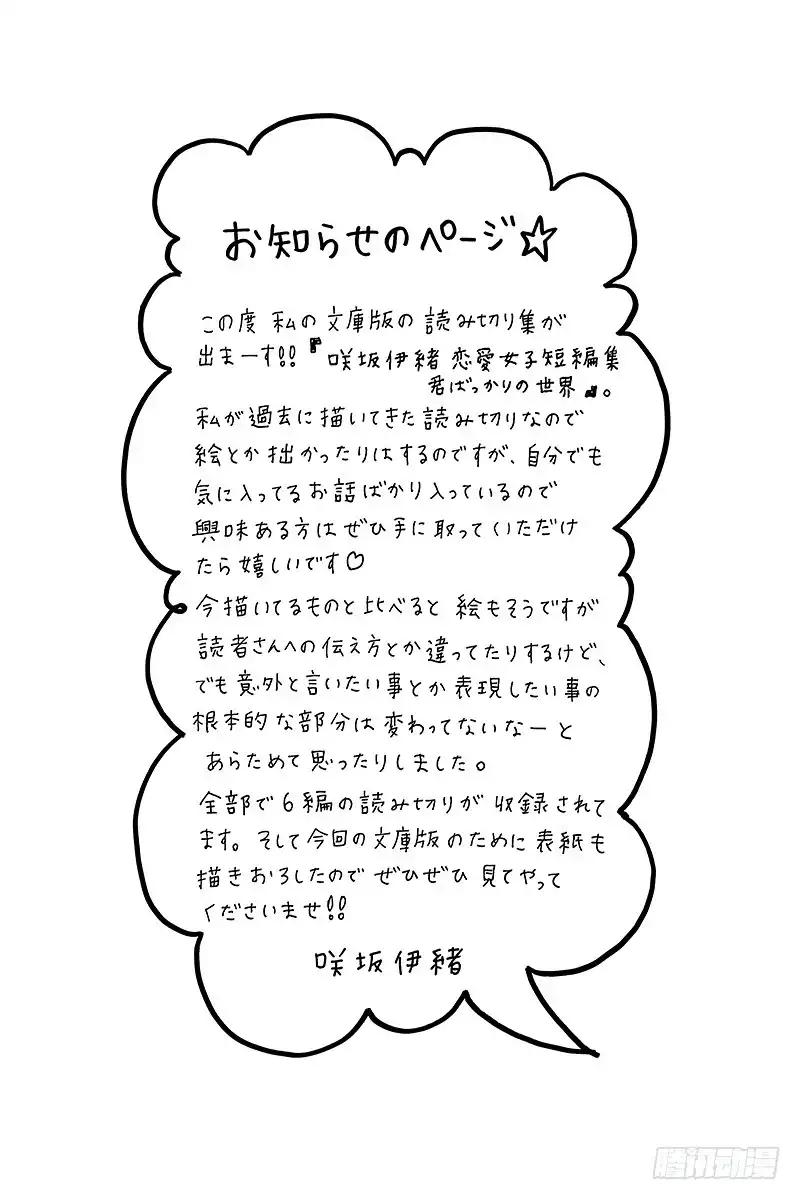 お知らせのページ☆
この度 私の文庫版の読み切り集が
出まーす!!『咲坂伊緒 恋愛女子短編集
君ばっかりの世界』。
私が過去に描いてきた読み切りなので
絵とか拙かったりはするのですが、自分でも
気に入ってるお話ばかり入っているので
興味ある方はぜひ手に取っていただけ
たら嬉しいです♡
今描いてるものと比べると 絵もそうですが
読者さんへの伝え方とか違ってたりするけど、
でも意外と言いたい事とか表現したい事の
根本的な部分は変わってないなーと
あらためて思ったりしました。
全部で6編の読み切りが収録されて
ます。そして今回の文庫版のために表紙も
描きおろしたので ぜひぜひ見てやって
くださいませ!!
咲坂伊緒
腾讯动漫